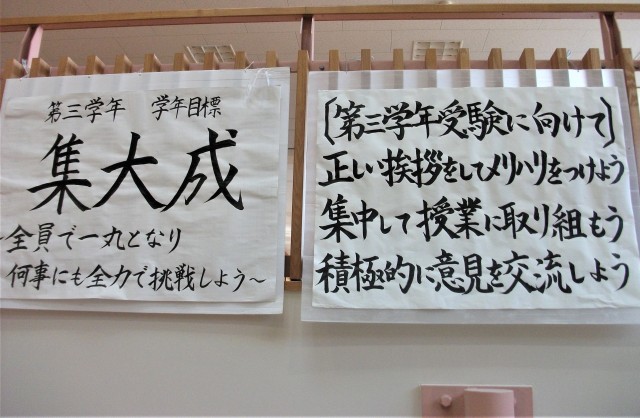 第三学年 学年目標
集大成
~全員で一丸となり
何事にも全力で挑戦しよう~
〔第三学年受験に向けて〕
正しい挨拶をしてメリハリをつけよう
集中して授業に取り組もう
積極的に意見を交流しよう